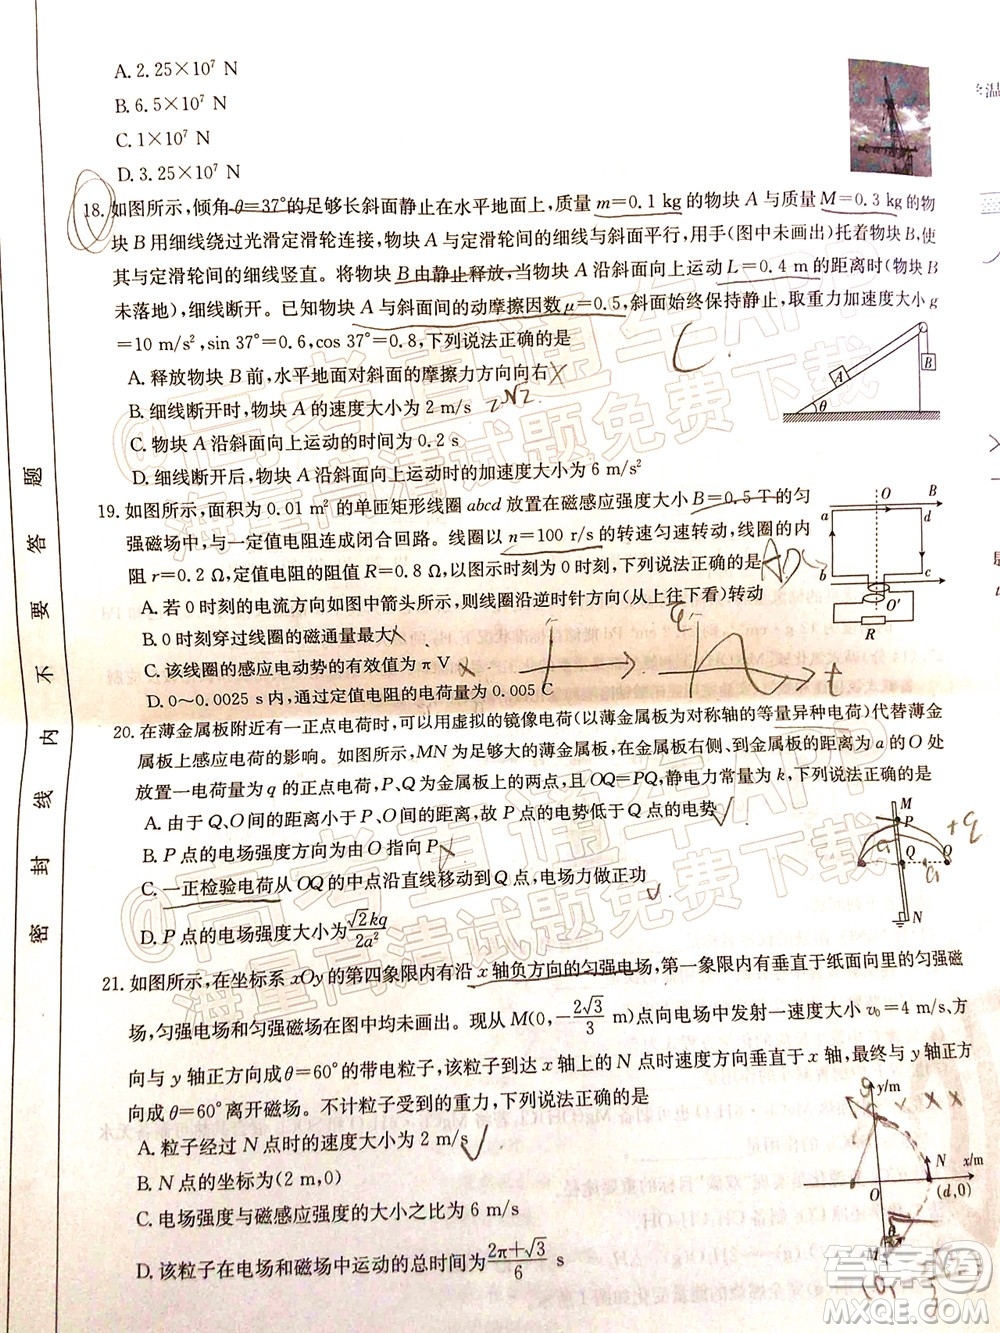 A. 2.25×10⁷ N
B. 6.5×10⁷ N
C. 1×10⁷ N
D. 3.25×10⁷ N
18. 如图所示,倾角θ=37°的足够长斜面静止在水平地面上,质量m=0.1 kg的物块A与质量M=0.3 kg的物
块B用细线绕过光滑定滑轮连接,物块A与定滑轮间的细线与斜面平行,用手(图中未画出)托着物块B,使
其与定滑轮间的细线竖直。将物块B由静止释放,当物块A沿斜面向上运动L=0.4 m的距离时(物块B
未落地),细线断开。已知物块A与斜面间的动摩擦因数μ=0.5,斜面始终保持静止,取重力加速度大小g
=10 m/s²,sin 37°=0.6,cos 37°=0.8,下列说法正确的是
C
A. 释放物块B前,水平地面对斜面的摩擦力方向向右
B. 细线断开时,物块A的速度大小为2 m/s
C. 物块A沿斜面向上运动的时间为0.2 s
D. 细线断开后,物块A沿斜面向上运动时的加速度大小为6 m/s²
A
B
θ
19. 如图所示,面积为0.01 m²的单匝矩形线圈abcd放置在磁感应强度大小B=0.5 T的匀
强磁场中,与一定值电阻连成闭合回路。线圈以n=100 r/s的转速匀速转动,线圈的内
阻r=0.2 Ω,定值电阻的阻值R=0.8 Ω,以图示时刻为0时刻,下列说法正确的是
A. 若0时刻的电流方向如图中箭头所示,则线圈沿逆时针方向(从上往下看)转动
B. 0时刻穿过线圈的磁通量最大
C. 该线圈的感应电动势的有效值为π V
D. 0~0.0025 s内,通过定值电阻的电荷量为0.005 C
O B
a d
b c
O′
R
20. 在薄金属板附近有一正点电荷时,可以用虚拟的镜像电荷(以薄金属板为对称轴的等量异种电荷)代替薄金
属板上感应电荷的影响。如图所示,MN为足够大的薄金属板,在金属板右侧、到金属板的距离为a的O处
放置一电荷量为q的正点电荷,P、Q为金属板上的两点,且OQ=PQ,静电力常量为k,下列说法正确的是
A. 由于Q、O间的距离小于P、O间的距离,故P点的电势低于Q点的电势
B. P点的电场强度方向为由O指向P
C. 一正检验电荷从OQ的中点沿直线移动到Q点,电场力做正功
D. P点的电场强度大小为√2kq/2a²
M
P
Q O
N
+q
21. 如图所示,在坐标系xOy的第四象限内有沿x轴负方向的匀强电场,第一象限内有垂直于纸面向里的匀强磁
场,匀强电场和匀强磁场在图中均未画出。现从M(0,-2√3/3 m)点向电场中发射一速度大小v₀=4 m/s、方
向与y轴正方向成θ=60°的带电粒子,该粒子到达x轴上的N点时速度方向垂直于x轴,最终与y轴正方
向成θ=60°离开磁场。不计粒子受到的重力,下列说法正确的是
A. 粒子经过N点时的速度大小为2 m/s
B. N点的坐标为(2 m,0)
C. 电场强度与磁感应强度的大小之比为6 m/s
D. 该粒子在电场和磁场中运动的总时间为(2π+√3)/6 s
y/m
N x/m
O (d,0)
M
密 封 线 内 不 要 答 题
@高考直通车APP
海量高清试题免费下载
@高考直通车APP
海量高清试题免费下载
答案圈
MXQE.COM